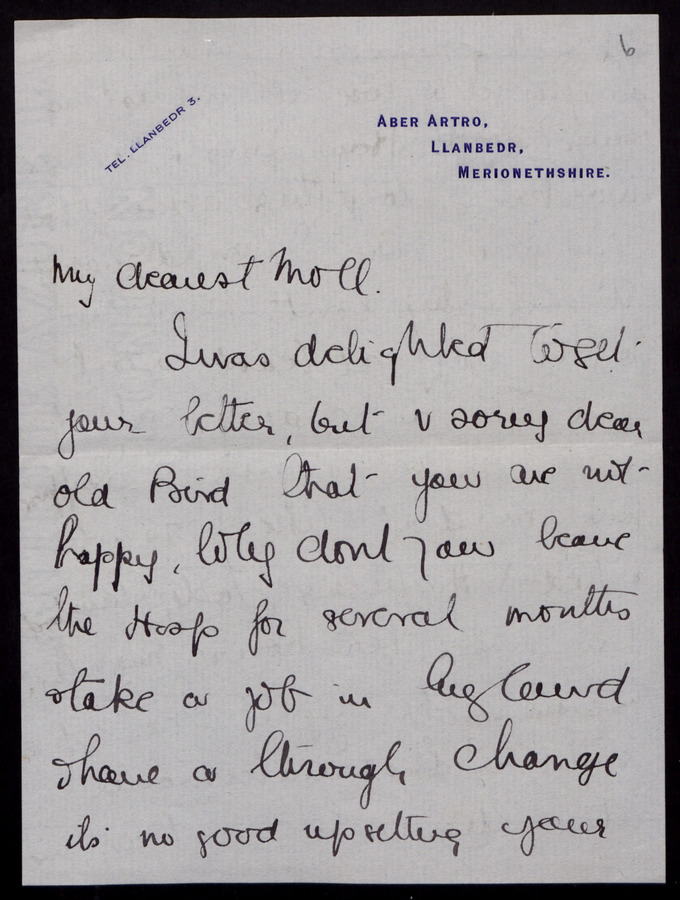 6
TEL. LLANBEDR 3.
ABER ARTRO,
LLANBEDR,
MERIONETHSHIRE.
My dearest Moll.
I was delighted to get
your letter, but v sorry dear
old Bird that you are not
happy, Why dont you leave
the Hosp for several months
& take a job in England
& have a through change
its no good upsetting your